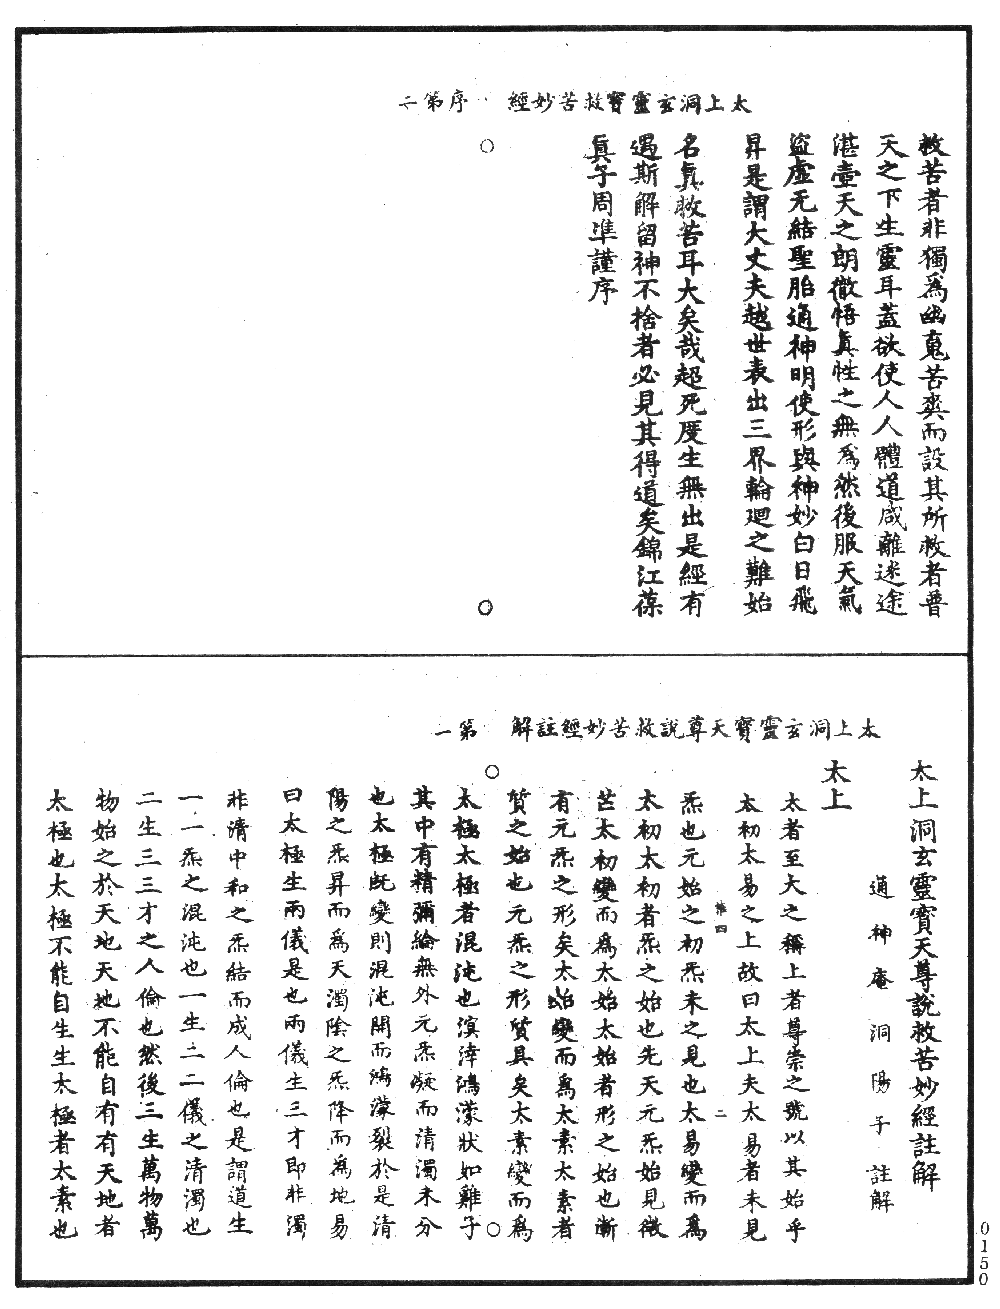 太上洞玄靈寶救苦妙經　序第二
救苦者非獨爲幽䰟苦爽而設其所救者普
天之下生靈耳蓋欲使人人體道咸離迷途
湛壹天之朗徹悟眞性之無爲然後服天氣
盜虛无結聖胎通神明使形與神妙白日飛
昇是謂大丈夫越世表出三界輪廻之難始
名眞救苦耳大矣哉超死度生無出是經有
遇斯解留神不捨者必見其得道矣錦江葆
眞子周準謹序
太上洞玄靈寶天尊說救苦妙經註解　第一
太上洞玄靈寶天尊說救苦妙經註解
通神庵洞陽子註解
太上
太者至大之稱上者尊崇之號以其始乎
太初太易之上故曰太上夫太易者未見
炁也元始之初炁未之見也太易變而爲
二
太初太初者炁之始也先天元炁始見微
芒太初變而爲太始太始者形之始也漸
有元炁之形矣太始變而爲太素太素者
質之始也元炁之形質具矣太素變而爲
太極太極者混沌也溟涬鴻濛狀如雞子
其中有精彌綸無外元炁凝而清濁未分
也太極旣變則混沌開而鴻濛裂於是清
陽之炁昇而爲天濁陰之炁降而爲地易
曰太極生兩儀是也兩儀生三才即非濁
非清中和之炁結而成人倫也是謂道生
一一炁之混沌也一生二二儀之清濁也
二生三三才之人倫也然後三生萬物萬
物始之於天地天地不能自有有天地者
太極也太極不能自生生太極者太素也
0150